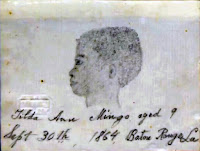 Tilda Ann Mingo aged 9
Sept 30th 1864 Baton Rouge La